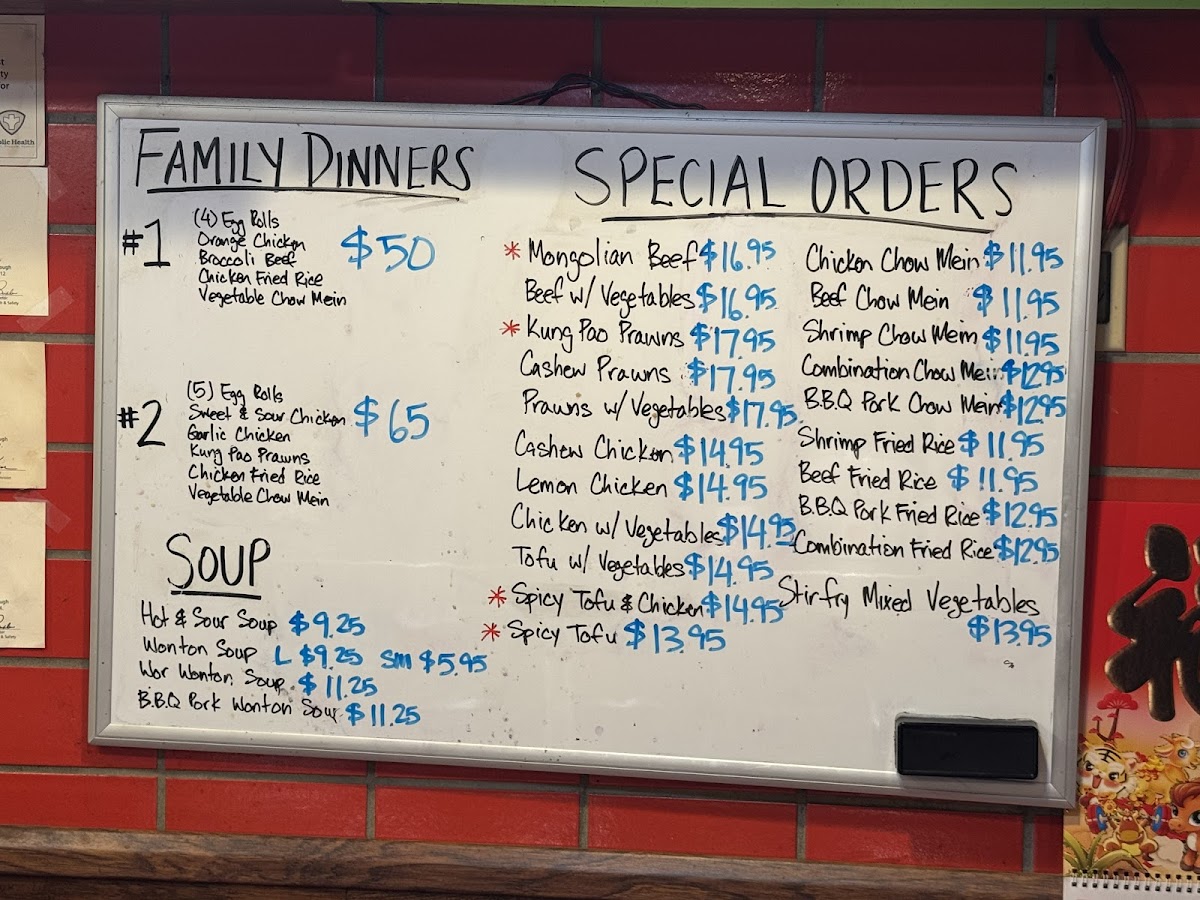 FAMILY DINNERS
#1
(4) Egg Rolls
Orange Chicken
Broccoli Beef
Chicken Fried Rice
Vegetable Chow Mein
$50
#2
(5) Egg Rolls
Sweet & Sour Chicken
Garlic Chicken
Kung Pao Prawns
Chicken Fried Rice
Vegetable Chow Mein
$65
SOUP
Hot & Sour Soup $9.25
Wonton Soup L $9.25 sm $5.95
Wor Wonton Soup $11.25
B.B.Q Pork Wonton Soup $11.25
SPECIAL ORDERS
* Mongolian Beef $16.95
Beef w/ Vegetables $16.95
* Kung Pao Prawns $17.95
Cashew Prawns $17.95
Prawns w/ Vegetables $17.95
Cashew Chicken $14.95
Lemon Chicken $14.95
Chicken w/ Vegetables $14.95
Tofu w/ Vegetables $14.95
* Spicy Tofu & Chicken $14.95
* Spicy Tofu $13.95
Chicken Chow Mein $11.95
Beef Chow Mein $11.95
Shrimp Chow Mein $11.95
Combination Chow Mein $12.95
B.B.Q Pork Chow Mein $12.95
Shrimp Fried Rice $11.95
Beef Fried Rice $11.95
B.B.Q Pork Fried Rice $12.95
Combination Fried Rice $12.95
Stirfry Mixed Vegetables
$13.95